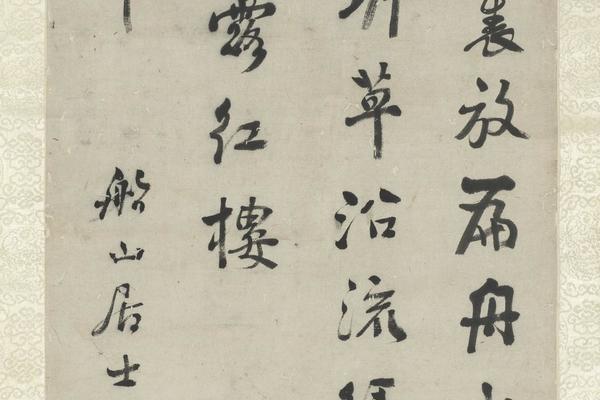 裏放扁舟
草沿流
露紅樓
船山居士